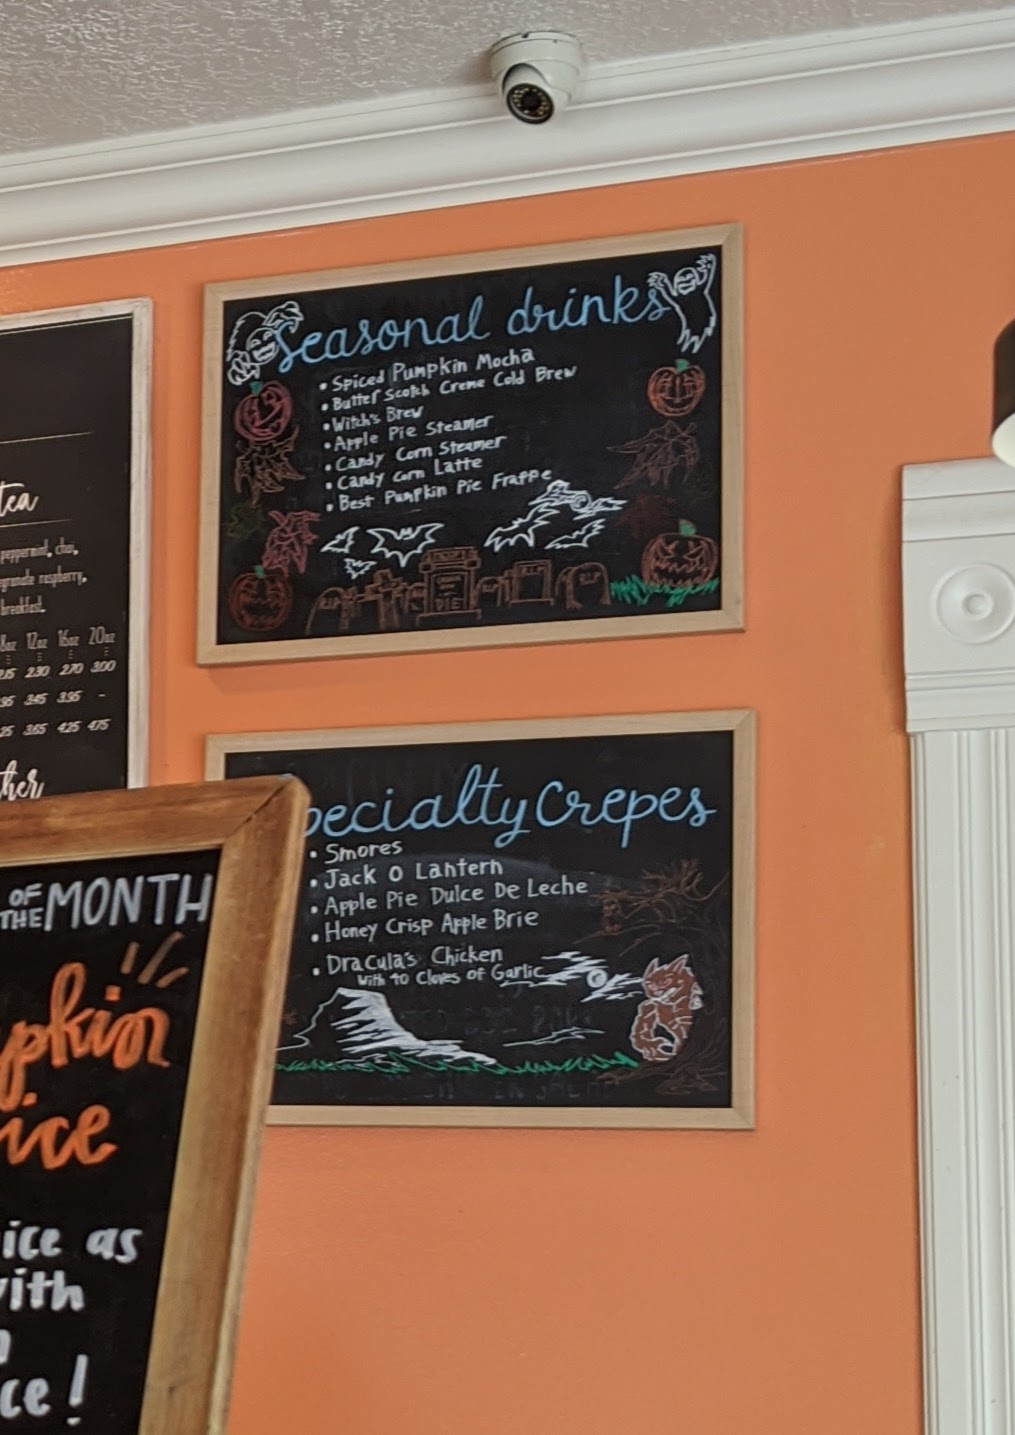 seasonal drinks
• Spiced Pumpkin Mocha
• Butter Scotch Creme Cold Brew
• Witch's Brew
• Apple Pie Steamer
• Candy Corn Steamer
• Candy Corn Latte
• Best Pumpkin Pie Frappe
DIE
RIP
RIP
tea
peppermint, chai,
raspberry,
breakfast.
8oz 12oz 16oz 20oz
2.30 2.70 3.00
3.45 3.95 -
3.65 4.25 4.75
specialty Crepes
• Smores
• Jack O Lantern
• Apple Pie Dulce De Leche
• Honey Crisp Apple Brie
• Dracula's Chicken
With 40 Cloves of Garlic
OF
THE MONTH
pkin
ice
ice as
with
ce!